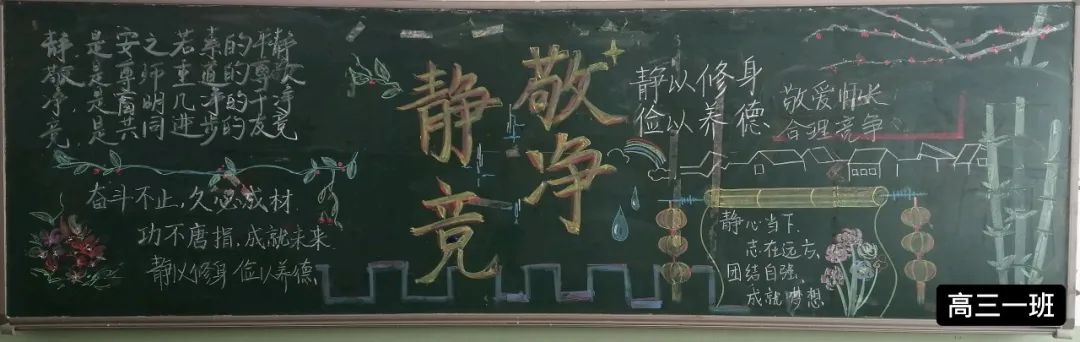 静,是安之若素的平静
敬,是尊师重道的尊敬
净,是窗明几净的干净
竞,是共同进步的友竞
奋斗不止,久必成材.
功不唐捐,成就未来.
静以修身 俭以养德
静 敬
竞 净
静以修身
俭以养德
敬爱师长
合理竞争
静心当下,
志在远方、
团结自强、
成就梦想
高三一班